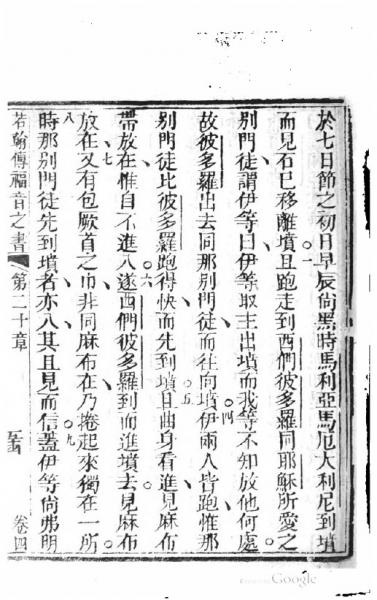 於七日節之初日早辰尙黑時馬利亞馬厄大利尼到墳
一
而見石已移離墳且跑走到西們彼多羅同耶穌所愛之
別門徒謂伊等曰伊等取主出墳而我等不知放他何處
四
故彼多羅出去同那別門徒而往向墳伊兩人皆跑惟那
五
別門徒比彼多羅跑得快而先到墳且曲身看進見麻布
六
帶放在惟自不進入遂西們彼多羅到而進墳去見麻布
七
放在又有包厥首之巾非同麻布在乃捲起來獨在一所
八
九
時那別門徒先到墳者亦入其且見而信蓋伊等尙弗明
若翰傳福音之書 第二十章 卷四
Google